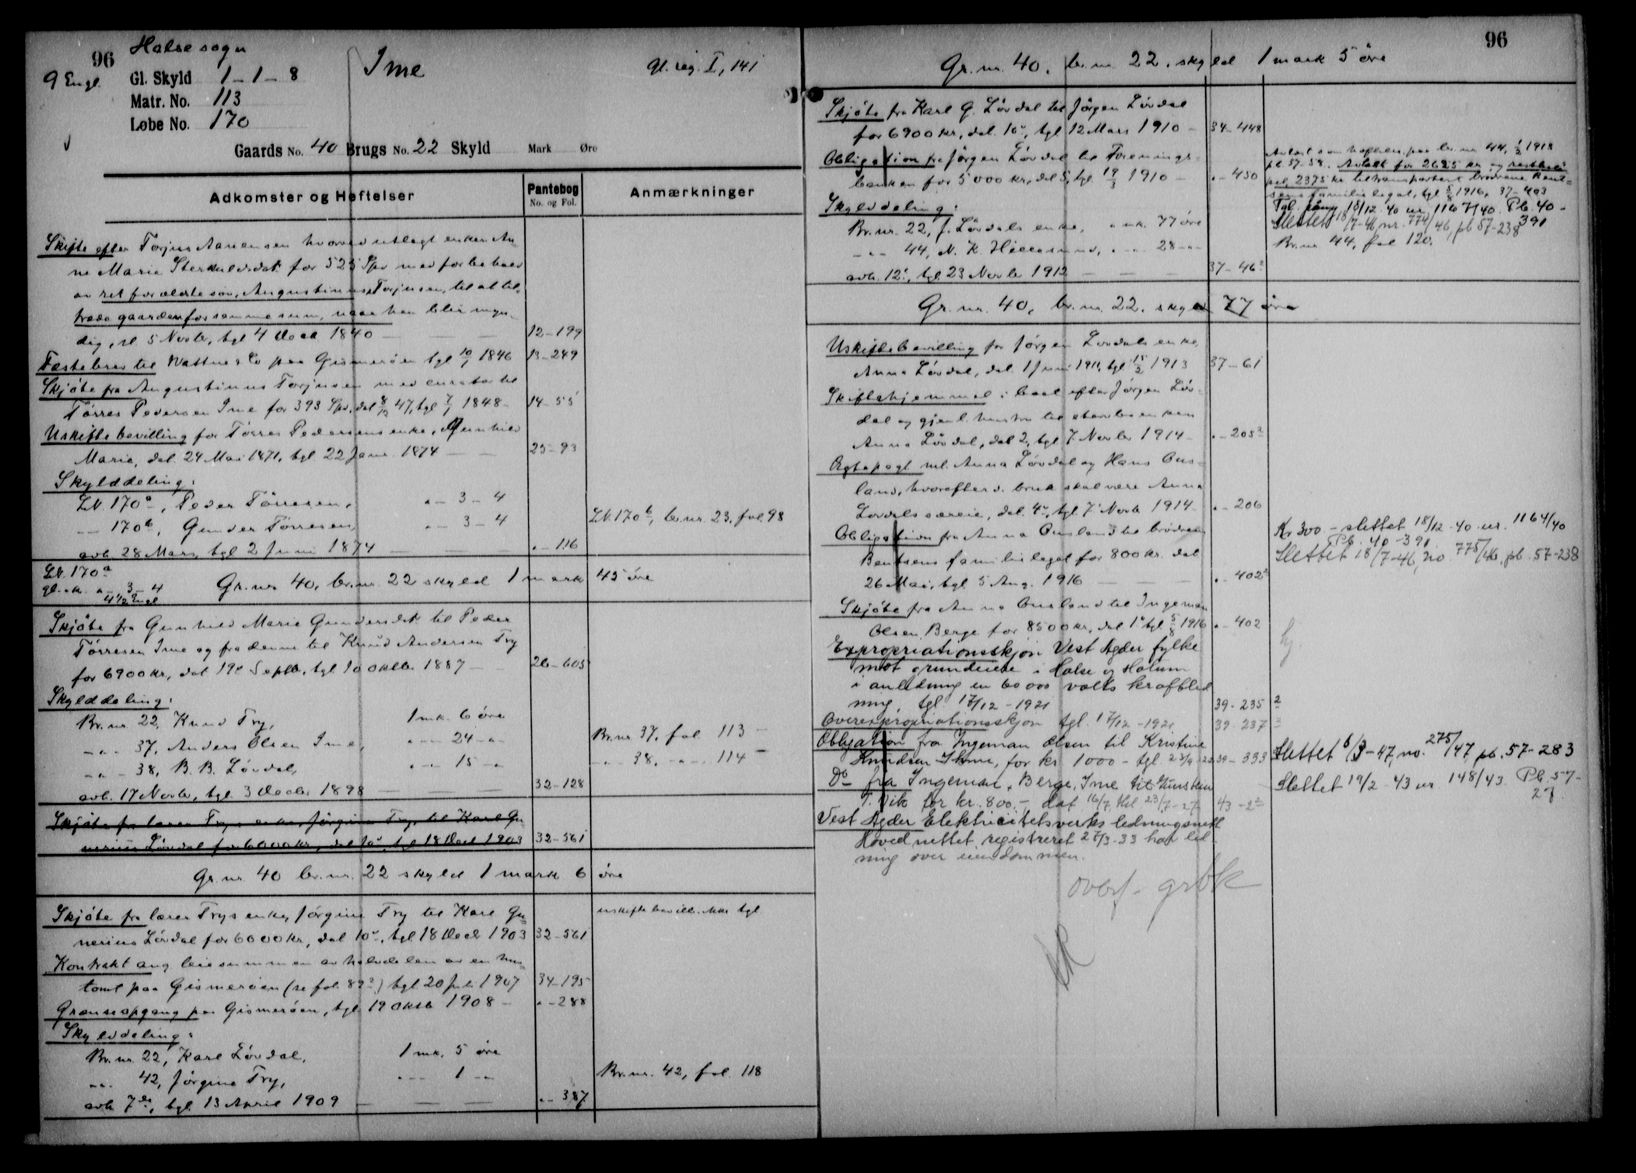 96
Halse sogn
9 Engl.
Gl. Skyld 1-1-8
Ime
Gl. reg. I, 141
Matr. No. 113
Løbe No. 170
Gaards No. 40 Brugs No. 22 Skyld Mark Øre
Adkomster og Heftelser
Pantebog
No. og Fol.
Anmærkninger
Skifte efter Torjus Aanensen hvorved utlagt enken An-
ne Marie Sterkulvsdatt for 525 Spd med forbehold
av ret for ældste søn, Augustinus Torjusen, til at til-
træde gaarden for samme sum, naar han blir myn-
dig, sl. 5 Novbr, tgl 4 Decb 1840 12-199
Fæstebrev til Wattne & Co paa Gismerøen tgl 10/7 1846 13-249
Skjøte fra Augustinus Torjusen med curator til
Tørres Pedersen Ime for 393 Spd, dat 47, tgl 1848 14-55
Uskiftebevilling for Tørres Pedersens enke, Gunhild
Marie, dat. 24 Mai 1871, tgl 22 Janr. 1874 25-93
Skylddeling:
LN. 170a, Peder Tørresen, "-3-4
-"- 170b, Gunder Tørresen, "-3-4
LN. 170b, br.nr. 23, fol 98
avh. 28 Mars, tgl 2 Juni 1874 "-116
LN. 170a
gl. sk. "-3-4
4½ Engl
Gr. nr 40, br. nr. 22 skyld 1 mark 45 øre
Skjøte fra Gunhild Marie Gundersdt til Peder
Tørresen Ime og fra denne til Knud Andersen Try
for 6900 kr, dat 19de Septbr, tgl 10 Oktbr 1887 26-605
Skylddeling:
Br. nr 22, Knud Try, 1 mk. 6 øre
-"- 37, Anders Olsen Ime, "-24-"-
Br. nr. 37, fol 113
-"- 38, B. B. Løvdal, "-15-"
-"- 38, -"- 114
avh. 17 Novbr, tgl 3 Decbr 1898 32-128
Skjøte fra lærer Trys enke, Jørgine Try, til Karl Gu-
nerius Løvdal for 6000 kr, dat 10de, tgl 18 Decb 1903 32-561
Gr. nr 40 br. nr. 22 skyld 1 mark 6 øre
Skjøte fra lærer Trys enke, Jørgine Try til Karl Gu-
uskiftebevill. ikke tgl
nerius Løvdal for 6000 kr, dat 10de, tgl 18 Decb 1903 32-561
Kontrakt ang leiesummen av halvdelen av en hus-
tomt paa Gismerøen (se fol 89) tgl 20 1907 34-195
Grænseopgang paa Gismerøen, tgl 19 Oktb 1908 "-288
Skylddeling:
Br. nr. 22, Karl Løvdal, 1 mk. 5 øre
-"- 42, Jørgine Try, "-1-"
Br. nr. 42, fol 118
avh 7de, tgl 13 April 1909 "-387
96
Gr. nr. 40, br. nr. 22, skyld 1 mark 5 øre
Skjøte fra Karl G. Løvdal til Jørgen Løvdal
for 6900 kr, dat. 10de, tgl 12 Mars 1910 34-448
Obligation fra Jørgen Løvdal til Forenings-
banken for 5000 kr, dat 5, tgl 1910 "-450
br. nr 44, 1918
pb 37-58. Avlæst for 2625 kr og restbelø-
pet, 2375 kr tiltransportert brødrene Bent-
sens familielegat, tgl 5/8 1916, 37-403
Tgl. påny 18/12 40 nr. 1167/40. Pb. 40-391
Slettet 18/7-46, nr. 774/46, pb 57-238
Skylddeling:
Br. nr. 22, J. Løvdals enke, "mk. 77 øre
-"- 44, N. K. Hillesund, "-28-"-
Br. nr. 44, fol 120.
avh. 12, tgl 23 Novbr 1912 37-46
Gr. nr. 40, br. nr. 22, skyld 77 øre
Uskiftebevilling for Jørgen Løvdals enke
Anna Løvdal, dat 1 Juni 1911, tgl 1913 37-61
Skiftehjemmel i boet efter Jørgen Løv-
dal og gjenl. hustru til
Anna Løvdal, dat 2, tgl 7 Novbr 1914 "-205
Ægtepagt ml. Anna Løvdal og Hans Aus-
land, hvorefter d. bruk skal være Anna
Løvdals særeie, dat. 4de, tgl 7 Novb 1914 "-206
Obligation fra Anna Ausland til brødrene
Bentsens familielegat for 800 kr. dat
26 Mai, tgl 5 Aug. 1916 "-402
Kr 300 - slettet 18/12-40. nr. 1164/40
Pb. 40-391.
Slettet 18/7-46, no. 775/46, pb. 57-238
Skjøte fra Anna Ausland til Ingeman
Olsen Berge for 8500 kr, dat 1 tgl 5/8 1916 "-402
Expropriationsskjøn Vest Agder fylke
mot grundeiere i Halse og Holum
i anledning en 60 000 volts kraftled-
ning, tgl 17/12-1921 39-235
Overexpropriationsskjøn tgl. 17/12-1921 39-237
Obligation fra Ingeman Olsen til Kristine
Knudsen Skeie, for kr 1000 - tgl 39-333
Slettet 6/3-47, no. 275/47 pb. 57-283
Do fra Ingeman Berge, Ime til
T. Vik for kr. 800.- dat 16/7 tgl 23/7-27 43-2
Slettet 19/2-43 nr 148/43. Pb 57-27
Vest Agder Elektricitetsverks ledningsnett
Hovednettet registreret 27/3-33 har led-
ning over eiendommen.
overf. grbk